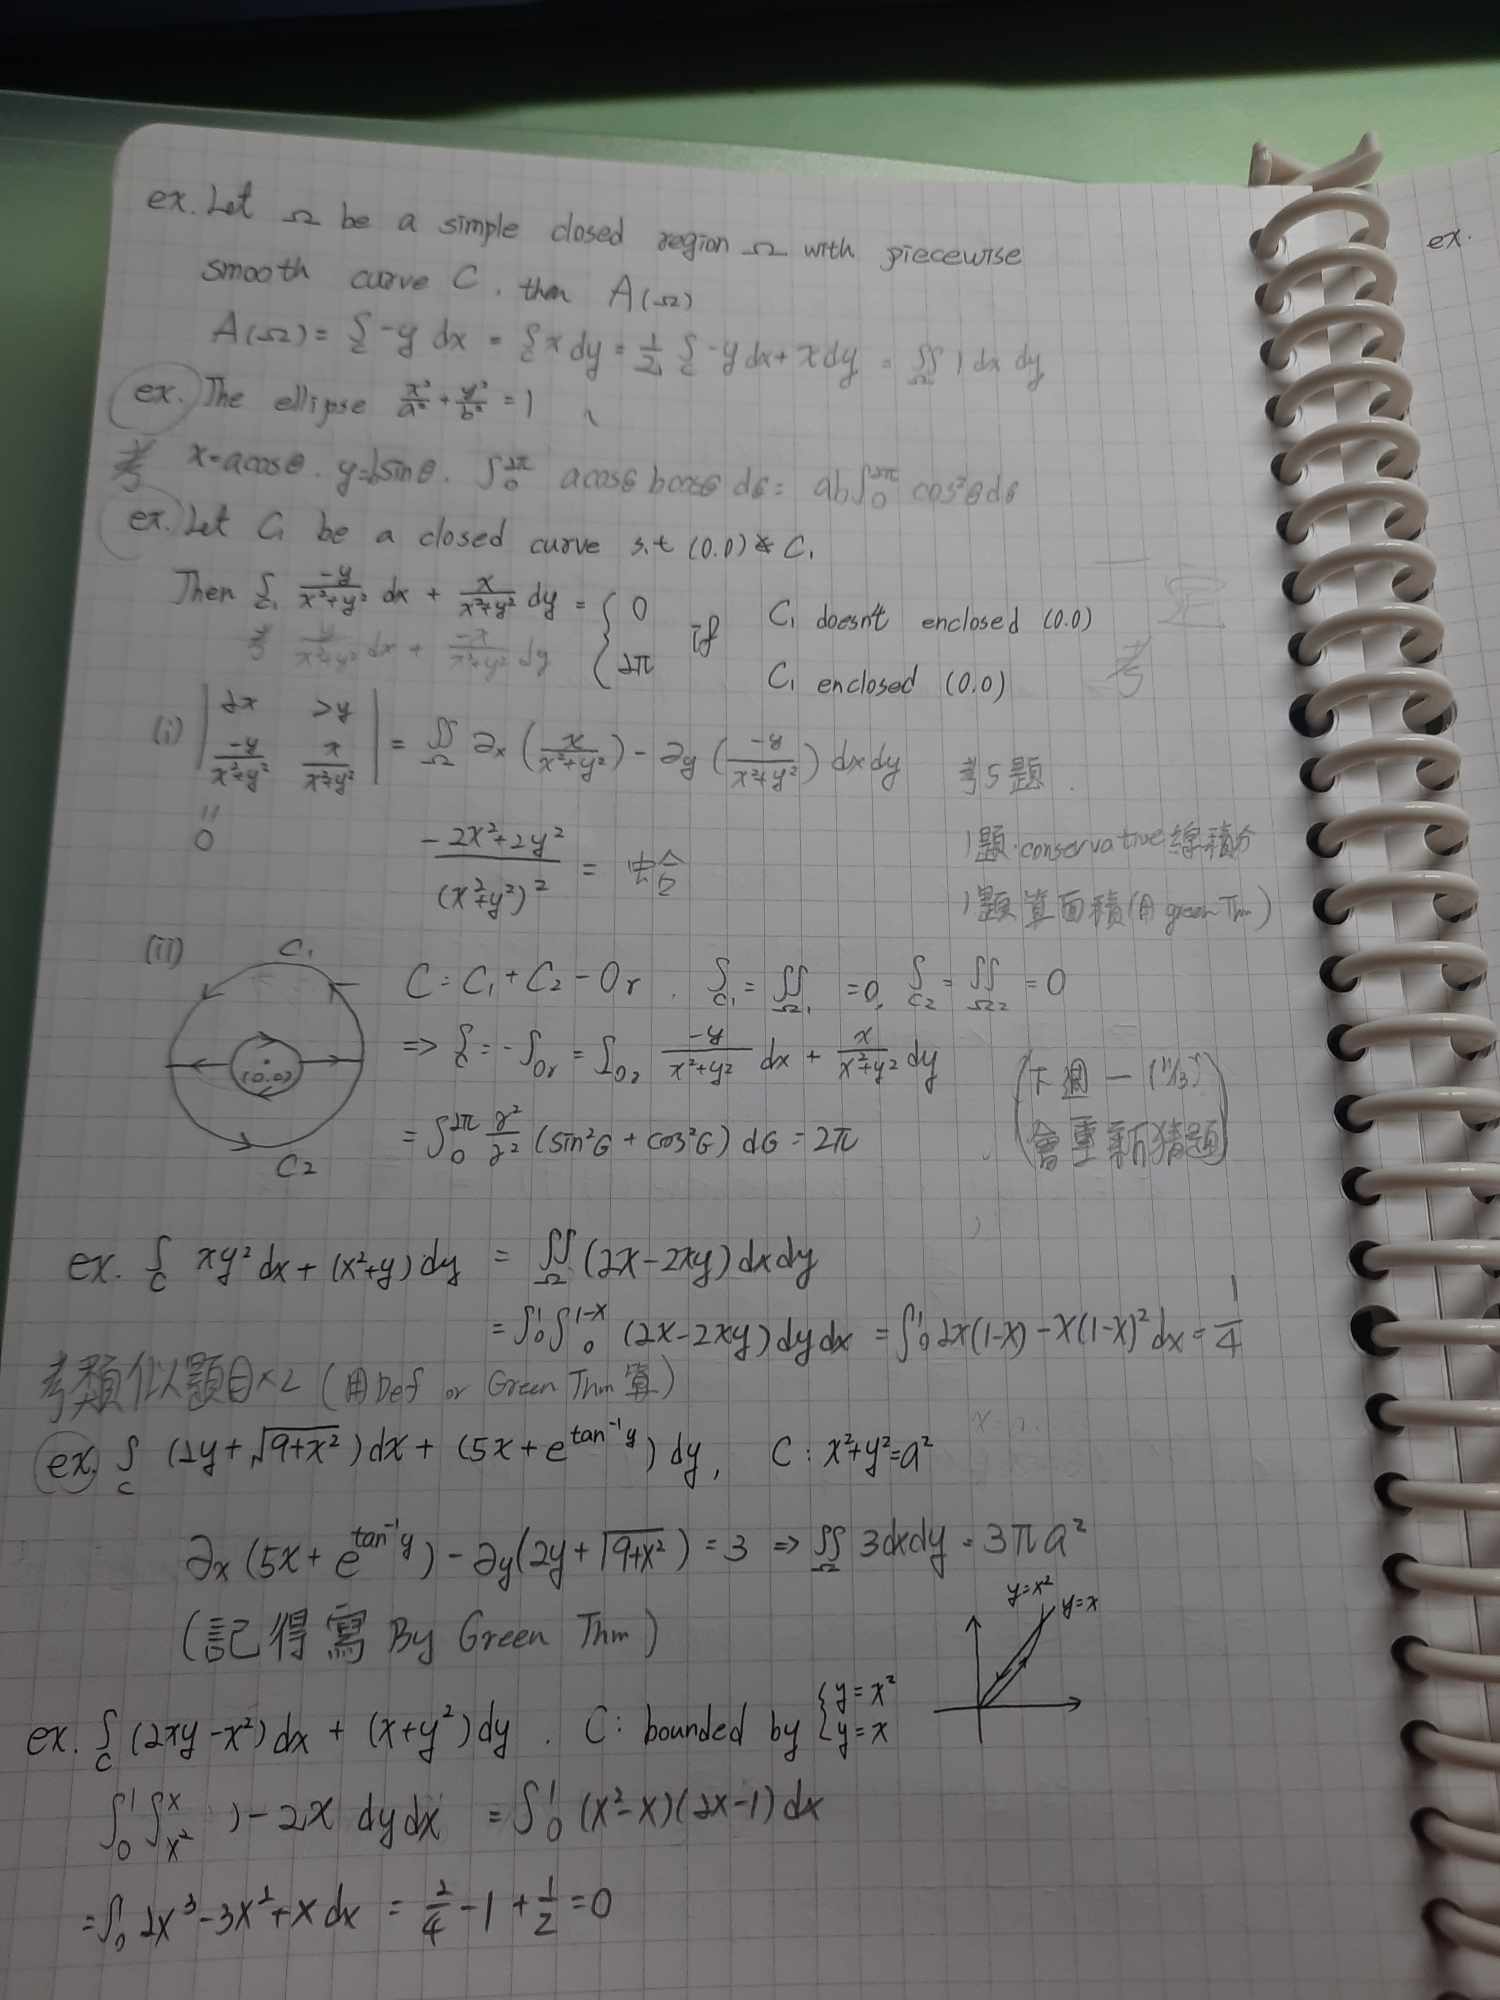 ex. Let Ω be a simple closed region Ω with piecewise
smooth curve C. then A(Ω)
A(Ω) = ∮c -y dx = ∮c x dy = 1/2 ∮c -y dx + x dy = ∬Ω 1 dx dy
ex. The ellipse x²/a² + y²/b² = 1
考 x=acosθ. y=bsinθ. ∫0^2π acosθ bcosθ dθ = ab∫0^2π cos²θdθ
ex. Let C1 be a closed curve s.t (0.0) ∉ C1
Then ∮C1 -y/(x²+y²) dx + x/(x²+y²) dy = { 0 if C1 doesn't enclosed (0.0)
2π C1 enclosed (0.0)
一定考
考 y/(x²+y²) dx + -x/(x²+y²) dy
(i) | ∂x ∂y ; -y/(x²+y²) x/(x²+y²) | = ∬Ω ∂x (x/(x²+y²)) - ∂y (-y/(x²+y²)) dx dy
考5題
" 0
(-2x²+2y²)/(x²+y²)² =
1題 conservative 線積分
1題 算面積 (用 green Thm)
(ii) C1 C2 (0.0)
C = C1 + C2 - Or . ∮C1 = ∬Ω1 = 0, ∮C2 = ∬Ω2 = 0
=> ∮c = -∫Or = ∫Or -y/(x²+y²) dx + x/(x²+y²) dy
= ∫0^2π r²/r² (sin²θ + cos²θ) dθ = 2π
(下週一 (11/3)
會重新猜題)
ex. ∮c xy² dx + (x²+y) dy = ∬Ω (2x-2xy) dxdy
= ∫0^1 ∫0^1-x (2x-2xy) dy dx = ∫0^1 2x(1-x) - x(1-x)² dx = 1/4
考類似題目×2 (用Def or Green Thm 算)
ex. ∮c (2y+√(9+x²)) dx + (5x+e^tan⁻¹y) dy, C: x²+y²=a²
∂x (5x+e^tan⁻¹y) - ∂y(2y+√(9+x²)) = 3 => ∬Ω 3dxdy = 3πa²
(記得寫 By Green Thm)
y=x² y=x
ex. ∮c (2xy-x²) dx + (x+y²) dy . C: bounded by { y=x² y=x
∫0^1 ∫x²^x 1-2x dy dx = ∫0^1 (x²-x)(2x-1) dx
= ∫0^1 2x³-3x²+x dx = 2/4 - 1 + 1/2 = 0
ex.